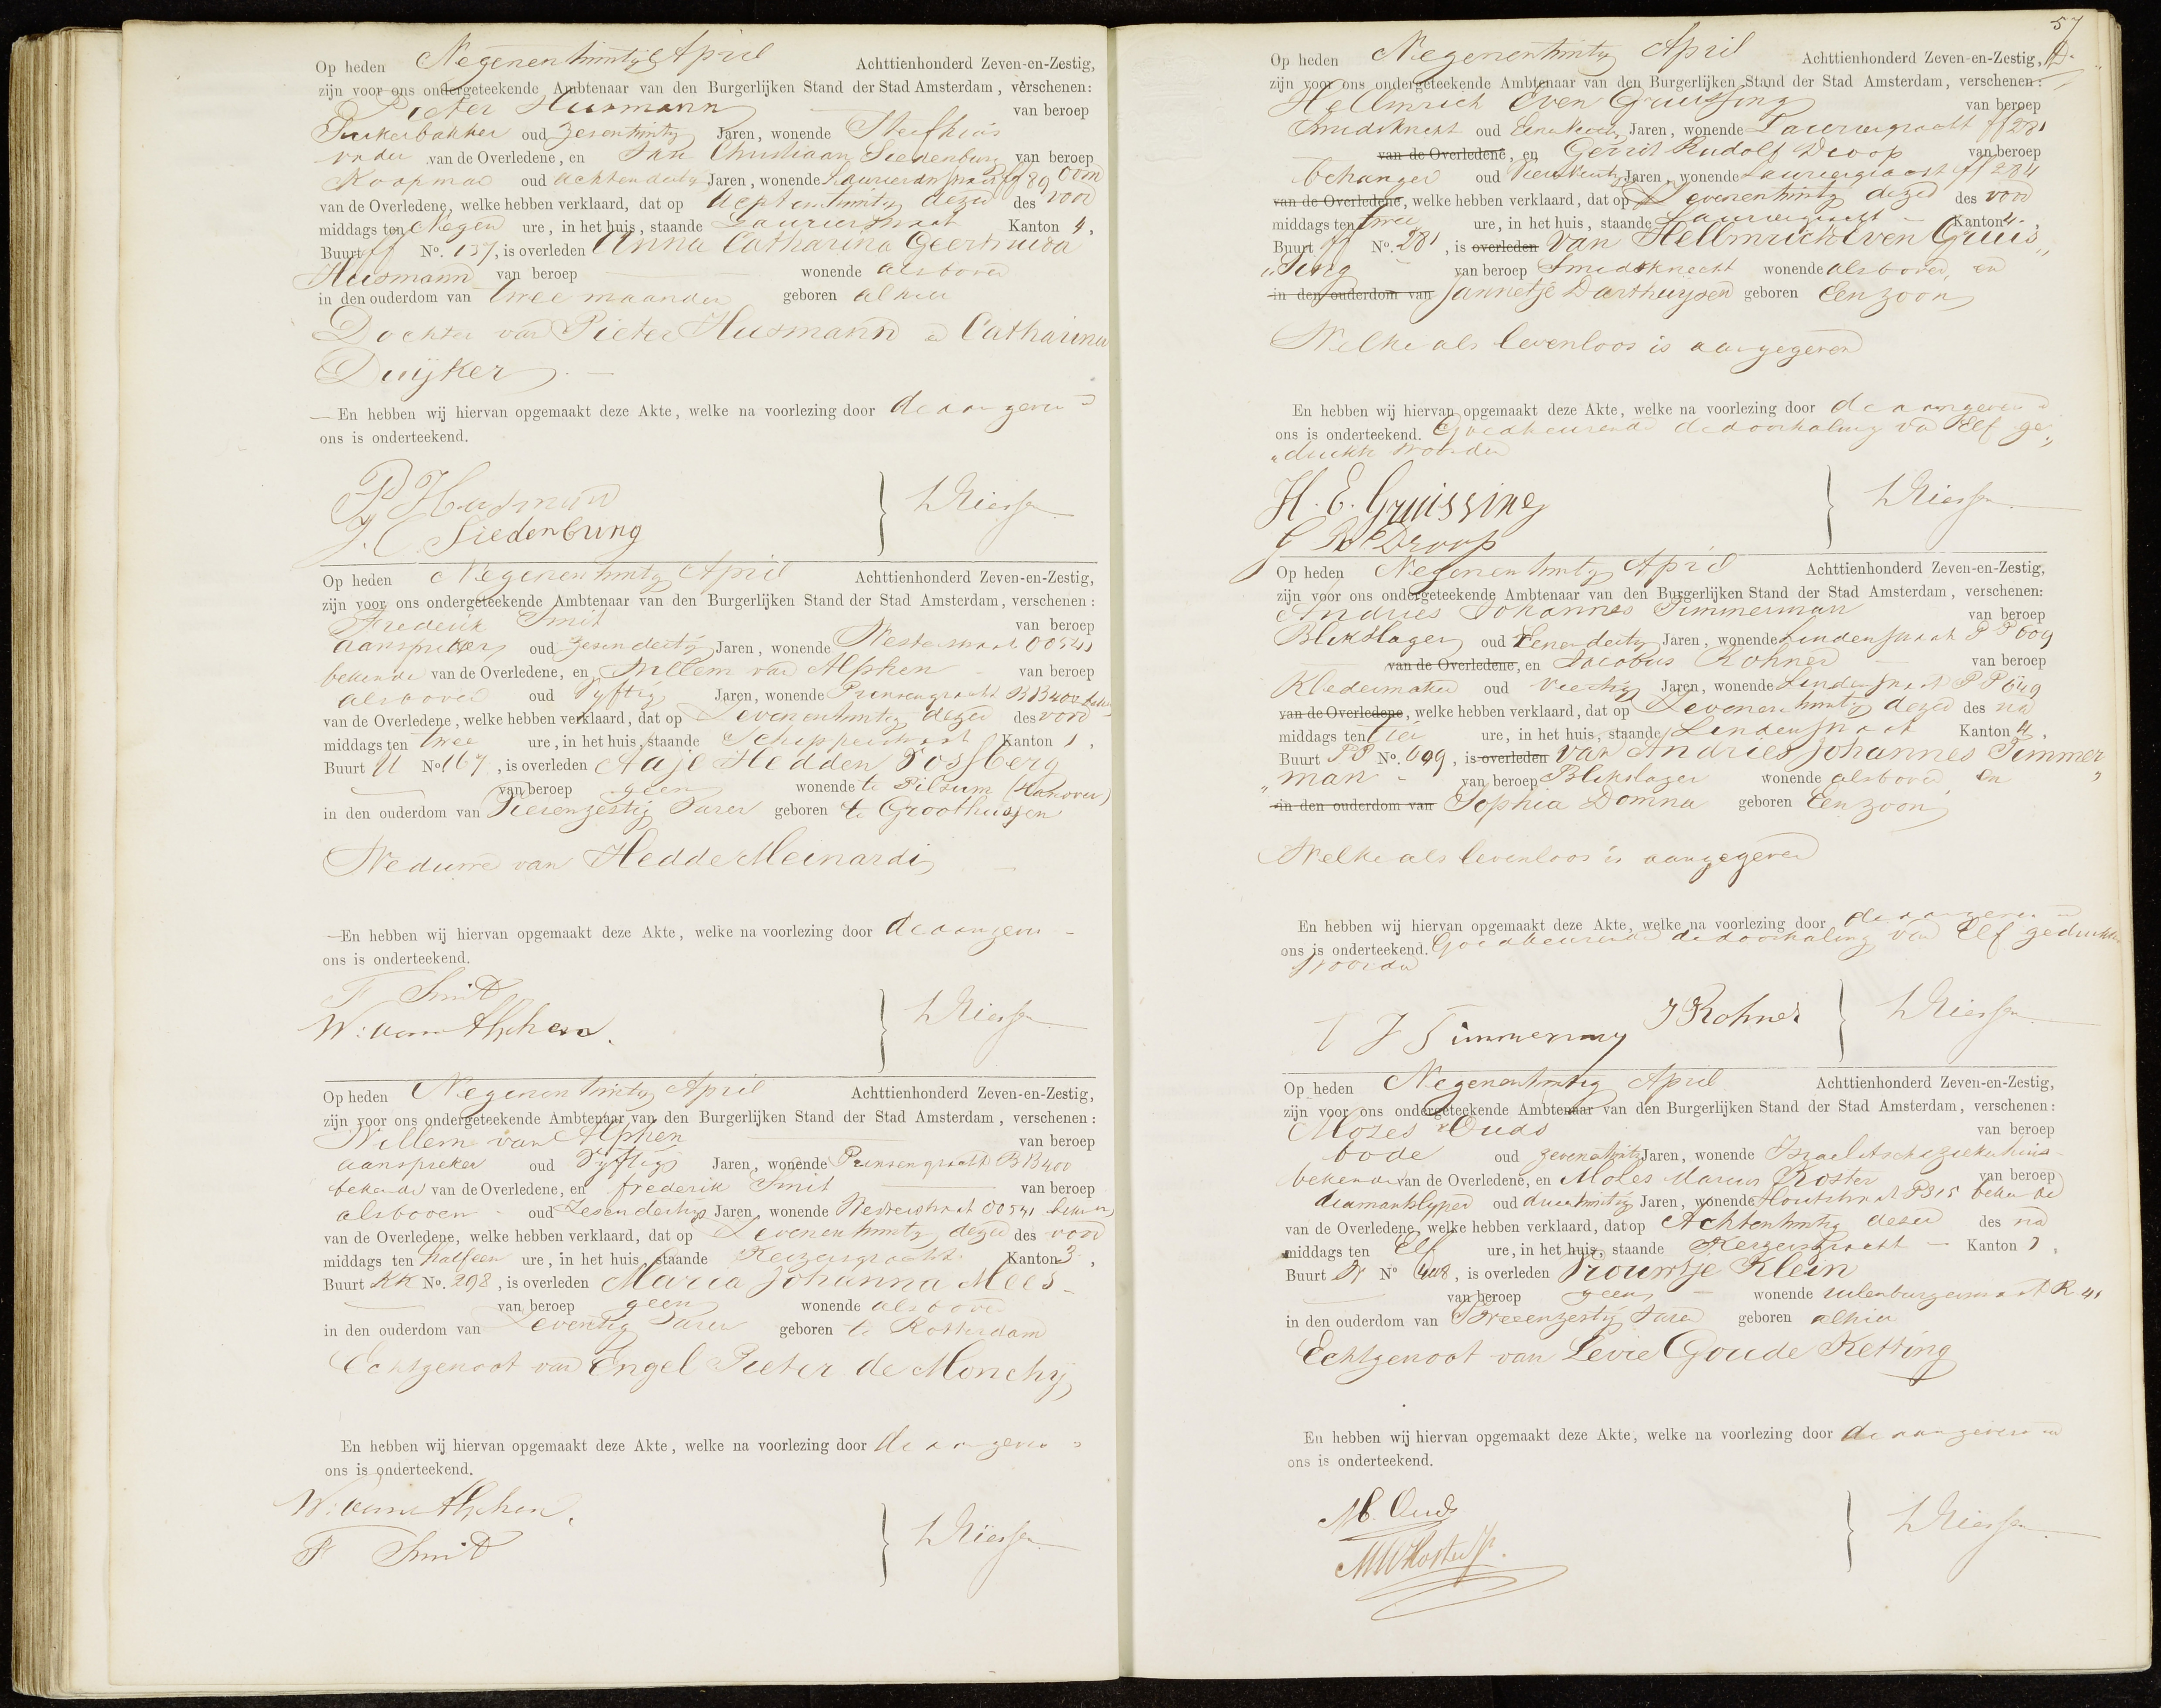 Op heden Negenentwintig April Achttienhonderd Zeven-en-Zestig,
zijn voor ons ondergeteekende Ambtenaar van den Burgerlijken Stand der Stad Amsterdam, verschenen:
Pieter Husmann van beroep
Suikerbakker oud zesentwintig Jaren, wonende
vader van de Overledene, en Jan Christiaan Siedenburg van beroep
Koopman oud achtendertig Jaren, wonende Laurierdwarsstr ff 89 Oom
van de Overledene, welke hebben verklaard, dat op Achtentwintig dezer des voor
middags ten Negen ure, in het huis, staande Laurierstraat Kanton 4,
Buurt ff No. 157, is overleden Anna Catharina Geertruida
Husmann van beroep wonende als boven
in den ouderdom van twee maanden geboren alhier
Dochter van Pieter Husmann en Catharina
Duijker
En hebben wij hiervan opgemaakt deze Akte, welke na voorlezing door de aangevers
ons is onderteekend.
P Husmann
J. C. Siedenburg
Op heden Negenentwintig April Achttienhonderd Zeven-en-Zestig,
zijn voor ons ondergeteekende Ambtenaar van den Burgerlijken Stand der Stad Amsterdam, verschenen:
Frederik Smit van beroep
aanspreker oud zesendertig Jaren, wonende Westerstraat OO 541
bekende van de Overledene, en Willem van Alphen van beroep
als boven oud Vyftig Jaren, wonende Prinsengracht BB 400 bekende
van de Overledene, welke hebben verklaard, dat op Zevenentwintig dezer des voor
middags ten twee ure, in het huis, staande Schippersstraat Kanton 1,
Buurt U No 167, is overleden Aaje Hedden Vossberg
van beroep geen wonende te Pilsum (Hanover)
in den ouderdom van Vierenzestig Jaren geboren te Groothusen
Weduwe van Hedde Meinardi
En hebben wij hiervan opgemaakt deze Akte, welke na voorlezing door de aangevers
ons is onderteekend.
F Smit
W: van Alphen.
Op heden Negenentwintig April Achttienhonderd Zeven-en-Zestig,
zijn voor ons ondergeteekende Ambtenaar van den Burgerlijken Stand der Stad Amsterdam, verschenen:
Willem van Alphen van beroep
aanspreker oud Vyftig Jaren, wonende Prinsengracht BB 400
bekende van de Overledene, en frederik Smit van beroep
als boven oud Zesendertig Jaren, wonende Westerstraat OO 541 bekende
van de Overledene, welke hebben verklaard, dat op Zevenentwintig dezer des voor
middags ten half een ure, in het huis, staande Keizersgracht Kanton 3,
Buurt KK No. 298, is overleden Maria Johanna Mees
van beroep geen wonende als boven
in den ouderdom van Zeventig Jaren geboren te Rotterdam
Echtgenoot van Engel Pieter de Monchy
En hebben wij hiervan opgemaakt deze Akte, welke na voorlezing door de aangevers
ons is onderteekend.
W: van Alphen.
F Smit
57
Op heden Negenentwintig April Achttienhonderd Zeven-en-Zestig,
zijn voor ons ondergeteekende Ambtenaar van den Burgerlijken Stand der Stad Amsterdam, verschenen:
Hellmrich Even Gruissing van beroep
Smidsknecht oud Jaren, wonende Lauriergracht ff 281
van de Overledene, en Gerrit Rudolf Droop van beroep
behanger oud Jaren, wonende Lauriergracht ff 284
van de Overledene, welke hebben verklaard, dat op Zevenentwintig dezer des voor
middags ten twee ure, in het huis, staande Lauriergracht Kanton 4,
Buurt ff No. 281, is overleden Van Hellmrich Even Gruis„
„sing van beroep Smidsknecht wonende als boven, en
in den ouderdom van Jannetje Darthuijsen geboren Een zoon
Welke als levenloos is aangegeven
En hebben wij hiervan opgemaakt deze Akte, welke na voorlezing door de aangevers
ons is onderteekend. Goedkeurende de doorhaling van Elf ge„
„drukte woorden
H. E. Gruissing
G R Droop
Op heden Negenentwintig April Achttienhonderd Zeven-en-Zestig,
zijn voor ons ondergeteekende Ambtenaar van den Burgerlijken Stand der Stad Amsterdam, verschenen:
Andries Johannes Timmerman van beroep
Blikslager oud Eenendertig Jaren, wonende Lindenstraat PP 609
van de Overledene, en Jacobus Rohner van beroep
Kledermaker oud Veertig Jaren, wonende Lindenstraat PP 649
van de Overledene, welke hebben verklaard, dat op Zevenentwintig dezer des na
middags ten vier ure, in het huis, staande Lindenstraat Kanton 4,
Buurt PP No. 609, is overleden van Andries Johannes Timmer„
„man van beroep Blikslager wonende als boven, en
in den ouderdom van Sophia Domna geboren Een zoon
Welke als levenloos is aangegeven
En hebben wij hiervan opgemaakt deze Akte, welke na voorlezing door de aangevers
ons is onderteekend. Goedkeurende de doorhaling van Elf gedrukte
woorden
J Rohner
J Timmerman
Op heden Negenentwintig April Achttienhonderd Zeven-en-Zestig,
zijn voor ons ondergeteekende Ambtenaar van den Burgerlijken Stand der Stad Amsterdam, verschenen:
Mozes Ouds van beroep
bode oud zevenentwintig Jaren, wonende Israelitische ziekenhuis
bekende van de Overledene, en Mozes Marcus Koster van beroep
diamantslyper oud drieentwintig Jaren, wonende Houtstraat P 315 bekende
van de Overledene, welke hebben verklaard, dat op Achtentwintig dezer des na
middags ten Elf ure, in het huis, staande Keizersgracht Kanton 1,
Buurt No 448, is overleden Vrouwtje Klein
van beroep geen wonende uilenburgerstraat R 41
in den ouderdom van Tweeenzestig Jaren geboren alhier
Echtgenoot van Levie Goude Ketting
En hebben wij hiervan opgemaakt deze Akte, welke na voorlezing door de aangevers
ons is onderteekend.
M. Ouds